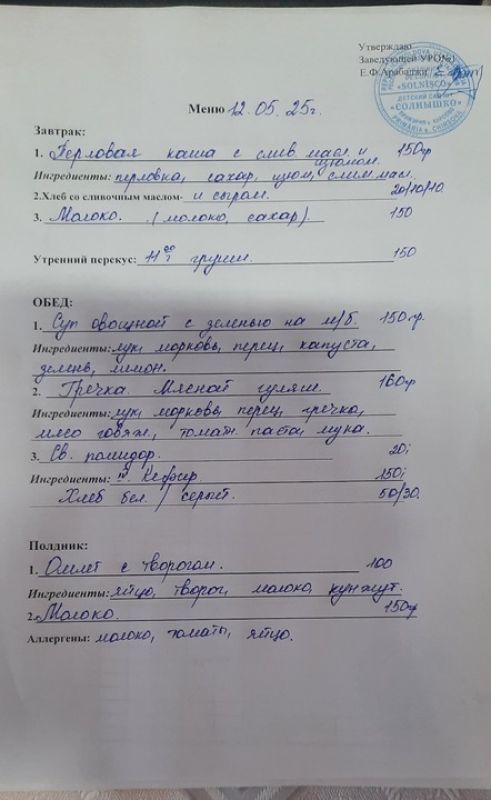 Утверждаю
Заведующей УРО№1
Е.Ф.Арабаджи
«SOLNIŞCO»
ДЕТСКИЙ САД №1
«СОЛНЫШКО»
PRIMĂRIA s. CHIRSOVA
Меню 12.05.25г.
Завтрак:
1. Перловая каша с слив. масл. и изюмом. 150гр
Ингредиенты: перловка, сахар, изюм, слив.масл.
2.Хлеб со сливочным маслом- и сыром. 20/10/10.
3. Молоко. (молоко, сахар). 150
Утренний перекус: 11 00 груши. 150
ОБЕД:
1. Суп овощной с зеленью на м/б. 150гр.
Ингредиенты: лук, морковь, перец, капуста,
зелень, лимон.
2. Гречка. Мясной гуляш. 160гр
Ингредиенты: лук, морковь, перец, гречка,
мясо говяж., томат. паста, мука.
3. Св. помидор. 20г
Ингредиенты: Кефир. 150г
Хлеб бел. / серый. 50/30.
Полдник:
1. Омлет с творогом. 100
Ингредиенты: яйцо, творог, молоко, кунжут.
2. Молоко. 150гр
Аллергены: молоко, томаты, яйцо.